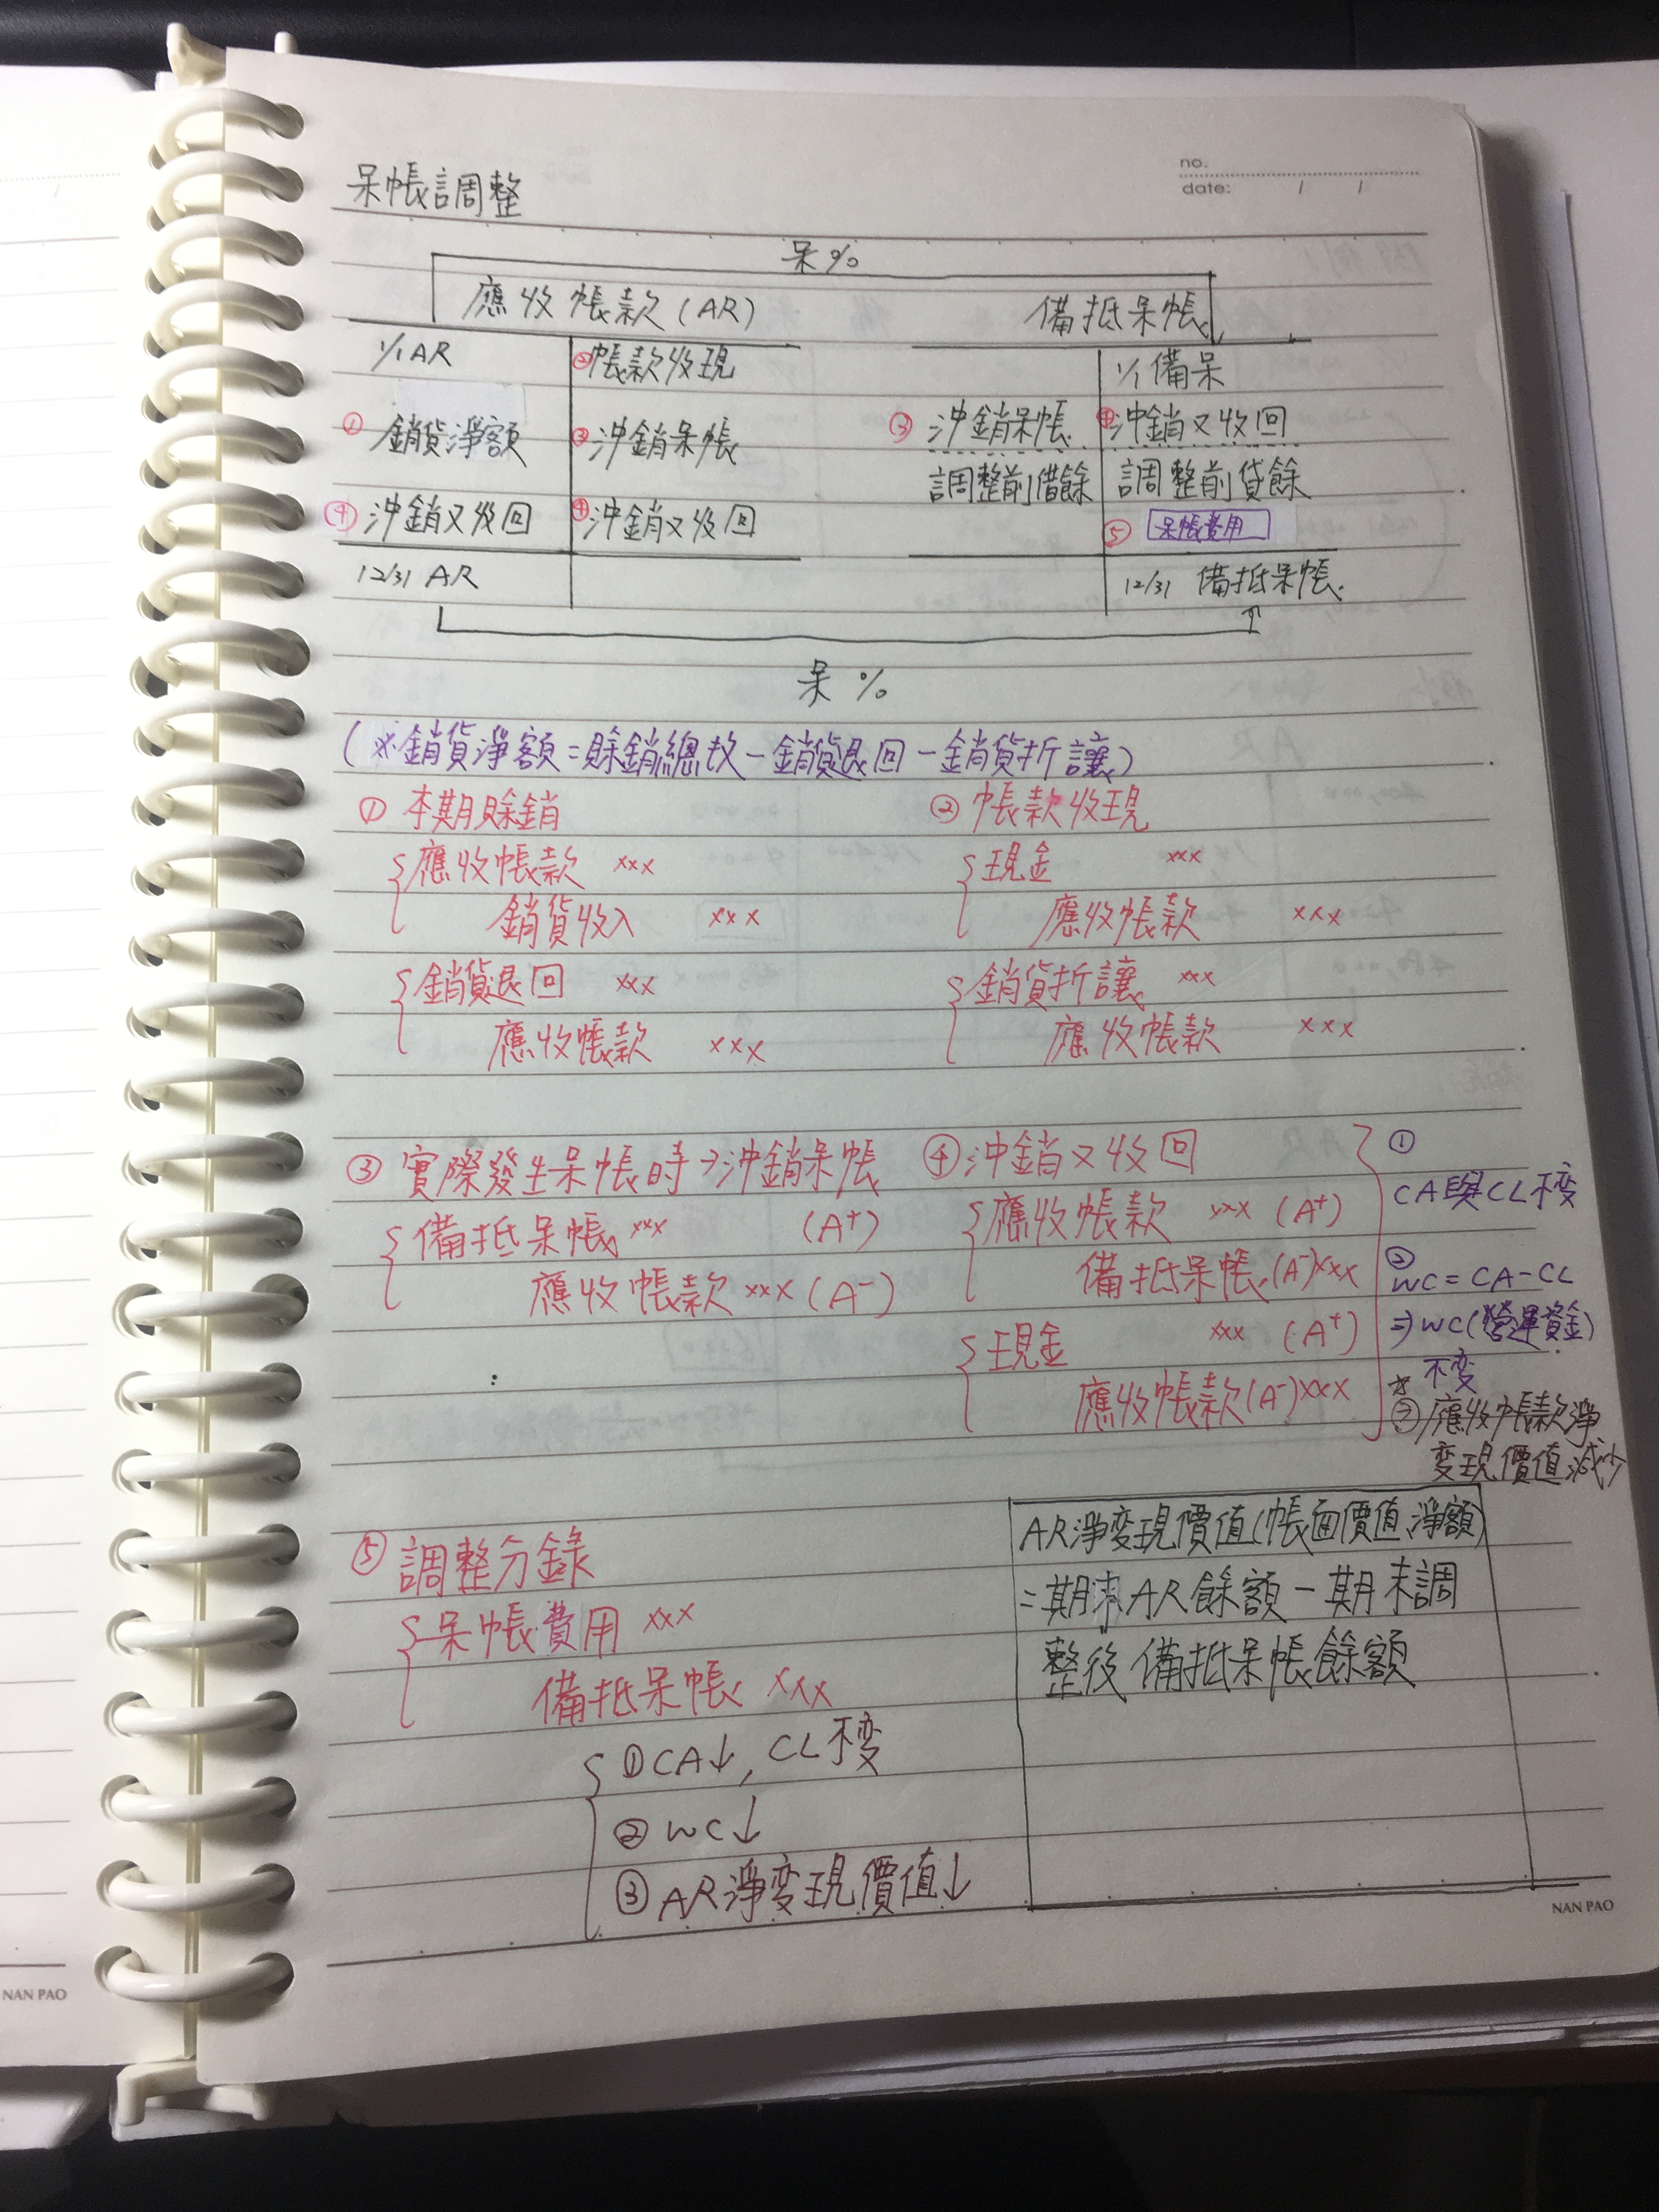 no.
date: / /
呆帳調整
呆%
應收帳款(AR) 備抵呆帳
1/1 AR ②帳款收現 1/1 備呆
①銷貨淨額 ③沖銷呆帳 ③沖銷呆帳 ④沖銷又收回
調整前借餘 調整前貸餘
④沖銷又收回 ④沖銷又收回 ⑤呆帳費用
12/31 AR 12/31 備抵呆帳
呆%
(※銷貨淨額=賒銷總攷-銷貨退回-銷貨折讓)
①本期賒銷 ②帳款收現
應收帳款 xxx 現金 xxx
銷貨收入 xxx 應收帳款 xxx
銷貨退回 xxx 銷貨折讓 xxx
應收帳款 xxx 應收帳款 xxx
③實際發生呆帳時→沖銷呆帳 ④沖銷又收回
備抵呆帳 xxx (A⁺) 應收帳款 xxx (A⁺)
應收帳款 xxx (A⁻) 備抵呆帳(A⁻)xxx
現金 xxx (A⁺)
應收帳款(A⁻)xxx
①
CA與CL不变
②
WC=CA-CL
⇒WC(營運資金)
不变
應收帳款淨
变現價值減少
⑤調整分錄
呆帳費用 xxx
備抵呆帳 xxx
①CA↓, CL不变
②WC↓
③AR淨变現價值↓
AR淨变現價值(帳面價值,淨額)
=期末AR餘額-期末調
整後備抵呆帳餘額
NAN PAO
NAN PAO